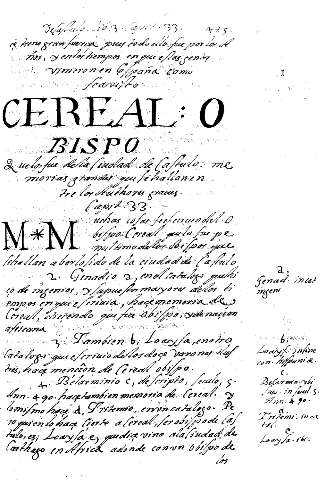 Castulo. lib. 3. Cap. 33.
a tierra gran fuerza pues todo ello fue por los A
ños, y en los tiempos en que estas gentes
vinieron en España como
se a visto
CEREAL: O
BISPO
Que lo fue de la Ciudad de Castulo. me
morias grandes que se hallan en
tre los Authores graves.
Capit. 33.
M*M uchas cosas se ofrecen del O
bispo Cereal que lo fue pe
nultimo de los Obispos que
se hallan aberlo sido de la ciudad de Castulo
2. Genadio a, en el Catalogo que hi
ço de ingenios, y
empos en que escrivia, haçe memoria de
Cereal, diciendo que fue obispo, y de nacion
africana.
3. Tambien b, Loaysa, en otro
Catalogo que escrivio de los doçe varones Ilus
tres, haçe mencion de Cereal obispo.
4. Belarmino c, de script. seculo, 5.
Ann. 490. haçe tambien memoria de Cereal. y
lo mismo haçe d, Tritemio, en su catalogo. Pe
ro quien lo haçe cierto a Cereal, ser obispo de Cas
tulo, es, Loaysa e, que diçe vino a la Ciudad de
Carthago en Africa adonde con un obispo de
los
a.
Genad.
b.
Loaysa
c.
Belarmi
Ann. 490.
d.
Tritemi. in ca
e.
Loaysa. ibi.